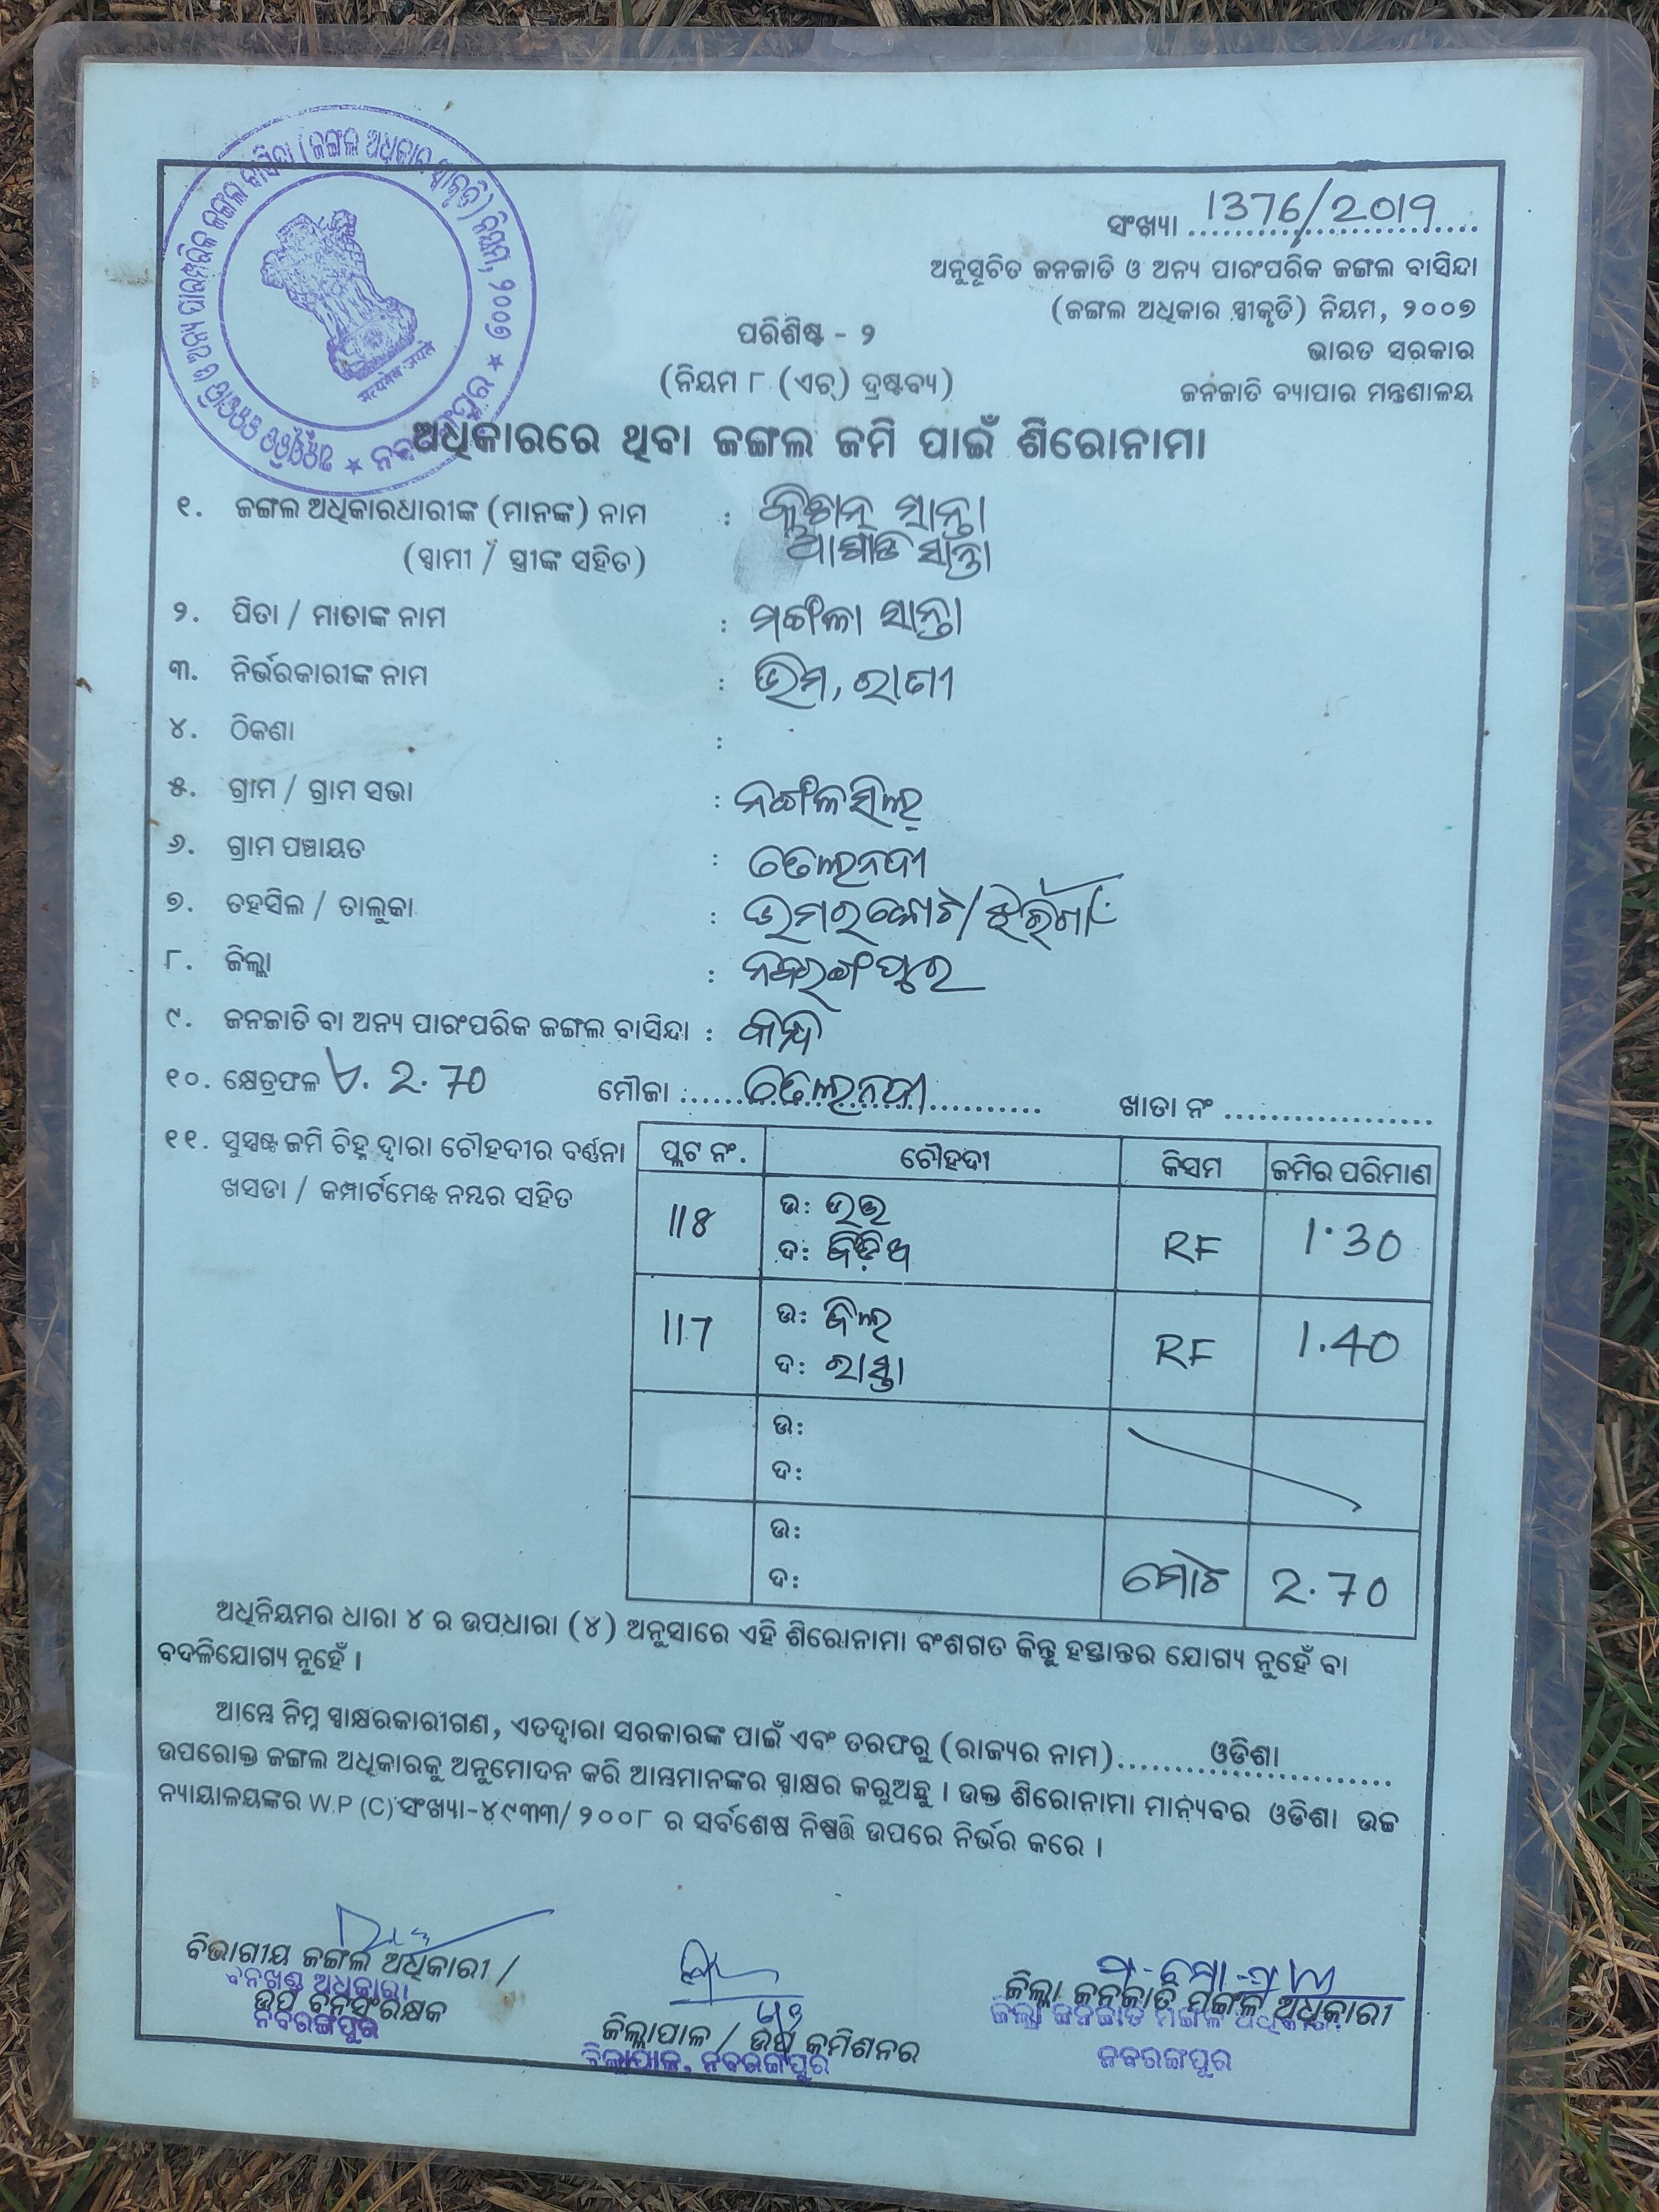 ସଂଖ୍ୟା 1376/2019
ଅନୁସୂଚିତ ଜନଜାତି ଓ ଅନ୍ୟ ପାରଂପରିକ ଜଙ୍ଗଲ ବାସିନ୍ଦା
(ଜଙ୍ଗଲ ଅଧିକାର ସ୍ୱୀକୃତି) ନିୟମ, ୨୦୦୭
ଭାରତ ସରକାର
ଜନଜାତି ବ୍ୟାପାର ମନ୍ତ୍ରଣାଳୟ
ପରିଶିଷ୍ଟ - ୨
(ନିୟମ ୮ (ଏଚ୍) ଦ୍ରଷ୍ଟବ୍ୟ)
ଅଧିକାରରେ ଥିବା ଜଙ୍ଗଲ ଜମି ପାଇଁ ଶିରୋନାମା
୧. ଜଙ୍ଗଲ ଅଧିକାରଧାରୀଙ୍କ (ମାନଙ୍କ) ନାମ : ସାନ୍ତା
(ସ୍ୱାମୀ / ସ୍ତ୍ରୀଙ୍କ ସହିତ) ସାନ୍ତା
୨. ପିତା / ମାତାଙ୍କ ନାମ : ମଙ୍ଗଳା ସାନ୍ତା
୩. ନିର୍ଭରକାରୀଙ୍କ ନାମ : ଭିମ,
୪. ଠିକଣା :
୫. ଗ୍ରାମ / ଗ୍ରାମ ସଭା :
୬. ଗ୍ରାମ ପଞ୍ଚାୟତ : ତେଲନଦୀ
୭. ତହସିଲ / ତାଲୁକା : ଉମରକୋଟ/ଝରିଗାଁ
୮. ଜିଲ୍ଲା : ନବରଙ୍ଗପୁର
୯. ଜନଜାତି ବା ଅନ୍ୟ ପାରଂପରିକ ଜଙ୍ଗଲ ବାସିନ୍ଦା :
୧୦. କ୍ଷେତ୍ରଫଳ 2.70 ମୌଜା ତେଲନଦୀ ଖାତା ନଂ
୧୧. ସୁସ୍ପଷ୍ଟ ଜମି ଚିହ୍ନ ଦ୍ୱାରା ଚୌହଦୀର ବର୍ଣ୍ଣନା
ଖସଡା / କମ୍ପାର୍ଟମେଣ୍ଟ ନମ୍ବର ସହିତ
ପ୍ଲଟ ନଂ. ଚୌହଦୀ କିସମ ଜମିର ପରିମାଣ
118 ଉ: ଦ: RF 1.30
117 ଉ: ବିଲ ଦ: ରାସ୍ତା RF 1.40
ଉ:
ଦ:
ଉ:
ଦ: ମୋଟ 2.70
ଅଧିନିୟମର ଧାରା ୪ ର ଉପଧାରା (୪) ଅନୁସାରେ ଏହି ଶିରୋନାମା ବଂଶଗତ କିନ୍ତୁ ହସ୍ତାନ୍ତର ଯୋଗ୍ୟ ନୁହେଁ ବା
ବଦଳିଯୋଗ୍ୟ ନୁହେଁ ।
ଆମ୍ଭେ ନିମ୍ନ ସ୍ୱାକ୍ଷରକାରୀଗଣ, ଏତଦ୍ୱାରା ସରକାରଙ୍କ ପାଇଁ ଏବଂ ତରଫରୁ (ରାଜ୍ୟର ନାମ) ଓଡିଶା
ଉପରୋକ୍ତ ଜଙ୍ଗଲ ଅଧିକାରକୁ ଅନୁମୋଦନ କରି ଆମ୍ଭମାନଙ୍କର ସ୍ୱାକ୍ଷର କରୁଅଛୁ । ଉକ୍ତ ଶିରୋନାମା ମାନ୍ୟବର ଓଡିଶା ଉଚ୍ଚ
ନ୍ୟାୟାଳୟଙ୍କର W.P (C) ସଂଖ୍ୟା-୪୯୩୩/୨୦୦୮ ର ସର୍ବଶେଷ ନିଷ୍ପତ୍ତି ଉପରେ ନିର୍ଭର କରେ ।
ବିଭାଗୀୟ ଜଙ୍ଗଲ ଅଧିକାରୀ /
ବନଖଣ୍ଡ ଅଧିକାରୀ
ଉପ ବନସଂରକ୍ଷକ
ନବରଙ୍ଗପୁର
ଜିଲ୍ଲାପାଳ / ଉପ କମିଶନର
ଜିଲ୍ଲାପାଳ, ନବରଙ୍ଗପୁର
ଜିଲ୍ଲା ଜନଜାତି ମଙ୍ଗଳ ଅଧିକାରୀ
ଜିଲ୍ଲା ଜନଜାତି ମଙ୍ଗଳ ଅଧିକାରୀ
ନବରଙ୍ଗପୁର